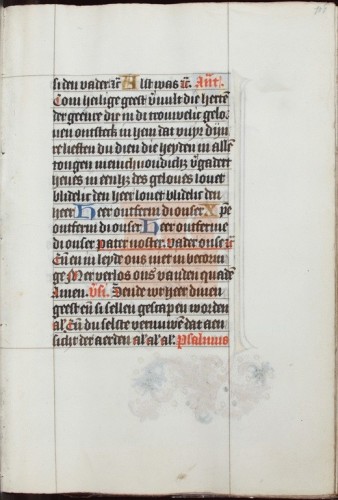 si den vader ec̄ Alst was ec̄. Ant̄.
Com heilige geest v̄vult die hertē
der geenre die in di trouwelic gelo-
uen ontsteck in hem dat vuyr dijn
re liesten du dien die heyden in allē
tongen menichuoudich v̄gadert
heues in des geloues louet
blidelic den heer louet blidelic den
heer Heer ontferm di onser Xp̄e
ontferm di onser Heer ontferme
di onser Pater noster. vader onse ec̄
En̄ en in leyde ons niet in becorin
ge Mer verlos ons vanden quadē
Amen. vsi. Sende wt heer dinen
geest en̄ si sellen gescapen worden
al' En̄ du selste vernuwē dat aen
sicht der aerden al' al' al'. Psalmus